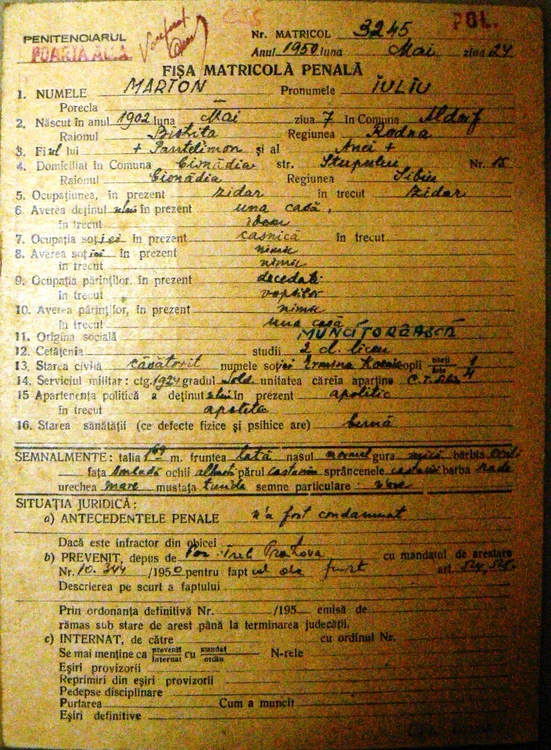 PENITENCIARUL
POARTA ALBĂ
POL.
Nr. MATRICOL 3245
Anul 1950 luna Mai ziua 24
FIȘA MATRICOLĂ PENALĂ
1. NUMELE MARTON Pronumele IULIU
Porecla
2. Născut în anul 1902 luna Mai ziua 7 în Comuna Aldorf
Raionul Bistrita Regiunea Rodna
3. Fiul lui + Pantelimon și al Anei +
4. Domiciliat în Comuna Cisnădia str. Nr. 15
Raionul Cisnădia Regiunea Sibiu
5. Ocupațiunea, în prezent zidar în trecut zidar
6. Averea deținutului în prezent una casă,
în trecut idem
7. Ocupația soției în prezent casnică în trecut
8. Averea soției în prezent nimic
în trecut nimic
9. Ocupația părinților, în prezent decedati
în trecut
10. Averea părinților, în prezent nimic
în trecut una casă
11. Origina socială MUNCITOREASCĂ
12. Cetățenia studii 2 cl. liceu
13. Starea civilă căsătorit numele soției copii băeți fete 1 4
14. Serviciul militar: ctg. 1924 gradul Sold. unitatea căreia aparține
15 Apartenența politică a deținutului în prezent apolitic
în trecut apolitic
16. Starea sănătății (ce defecte fizice și psihice are) bună
SEMNALMENTE: talia 1 m. fruntea lată nasul normal gura mică bărbia
fața ochii albaștri părul castaniu sprâncenele castanii barba rade
urechea mare mustața tunde semne particulare:
SITUAȚIA JURIDICĂ:
a) ANTECEDENTELE PENALE n'a fost condamnat
Dacă este infractor din obicei
b) PREVENIT, depus de Prahova cu mandatul de arestare
Nr. 10.344 /1950 pentru faptul de furt art.
Descrierea pe scurt a faptului
Prin ordonanța definitivă Nr. /195 emisă de
rămas sub stare de arest până la terminarea judecății.
c) INTERNAT, de către cu ordinul Nr.
Se mai menține ca prevenit internat cu mandat ordin N-rele
Eșiri provizorii
Reprimiri din eșiri provizorii
Pedepse disciplinare
Purtarea Cum a muncit
Eșiri definitive